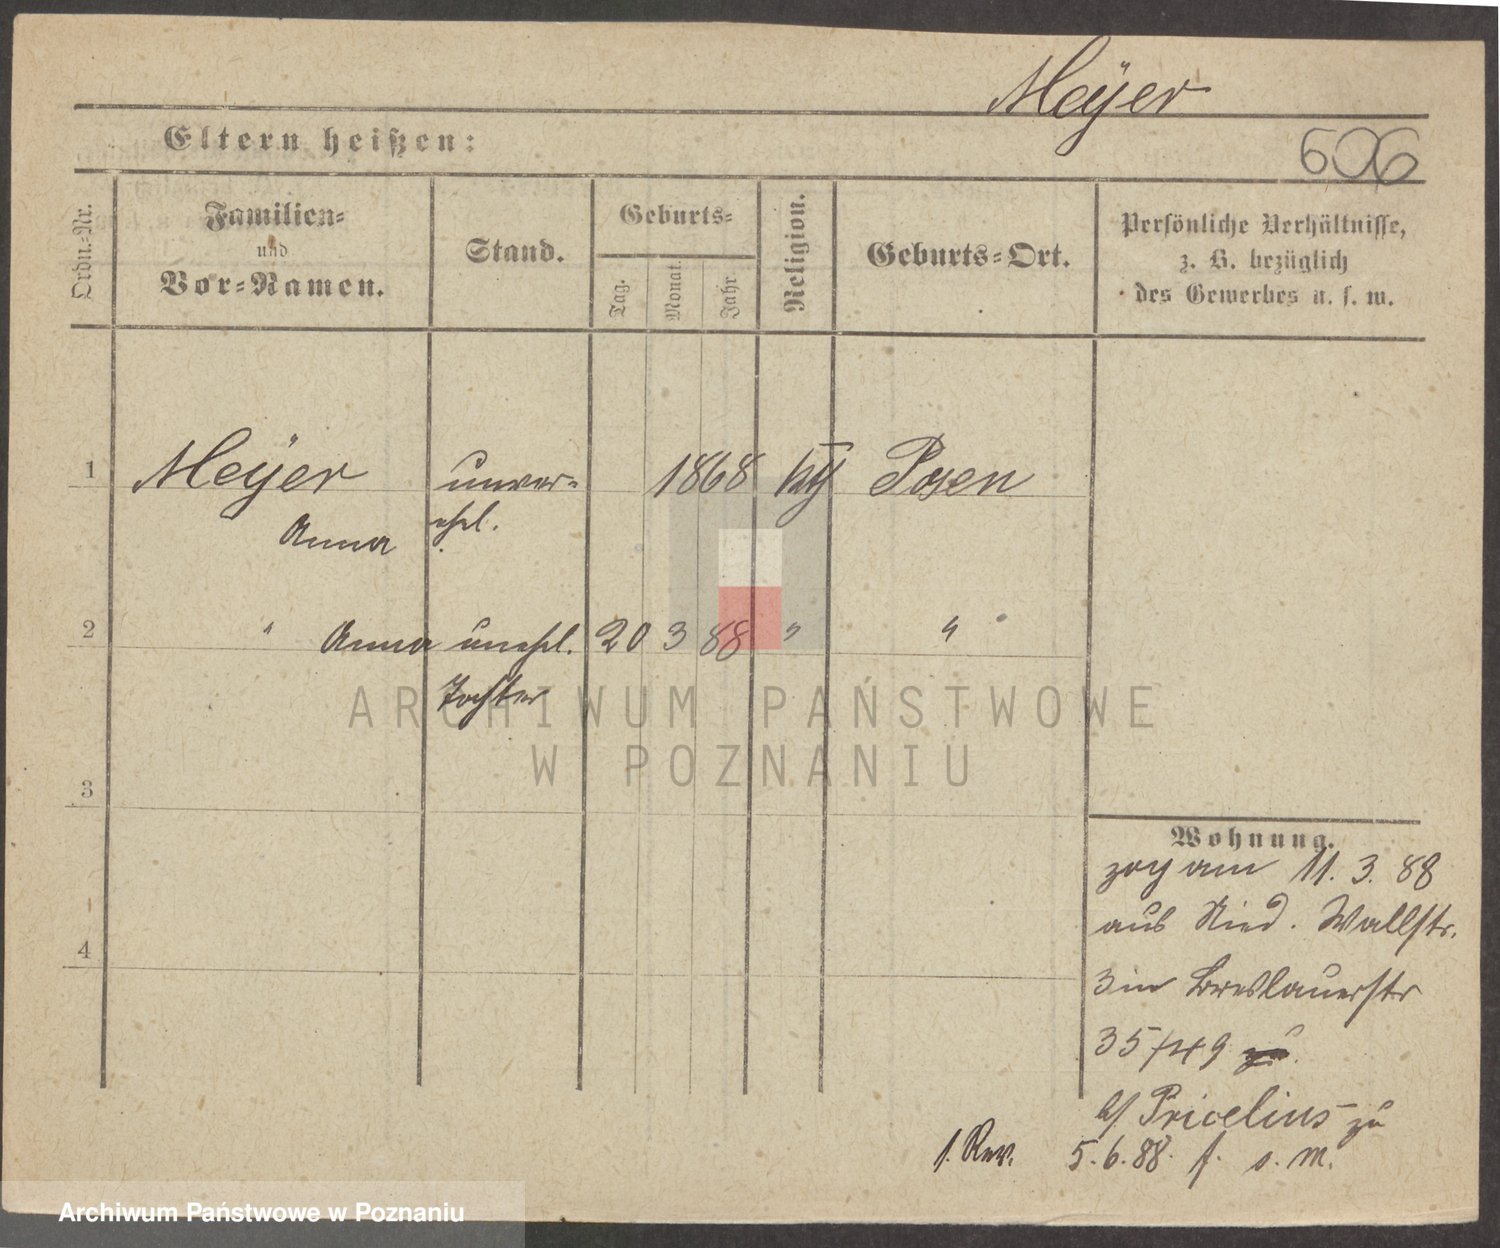 Meÿer
606
Eltern heißen:
Ordn.-Nr.
Familien-
und
Vor-Namen.
Stand.
Geburts-
Tag.
Monat.
Jahr.
Religion.
Geburts-Ort.
Persönliche Verhältnisse,
z. B. bezüglich
des Gewerbes u. s. w.
1 Meÿer unver- 1868 Posen
Anna ehel.
2 " Anna unehl. 20 3 88 " "
Tochter
3
4
Wohnung.
zog am 11. 3. 88
aus Nied. Wallstr.
3 in Breslauerstr
35/49
b/ Pricelius zu
1. Rev. 5.6.88. f. s. m.
ARCHIWUM PAŃSTWOWE
W POZNANIU
Archiwum Państwowe w Poznaniu